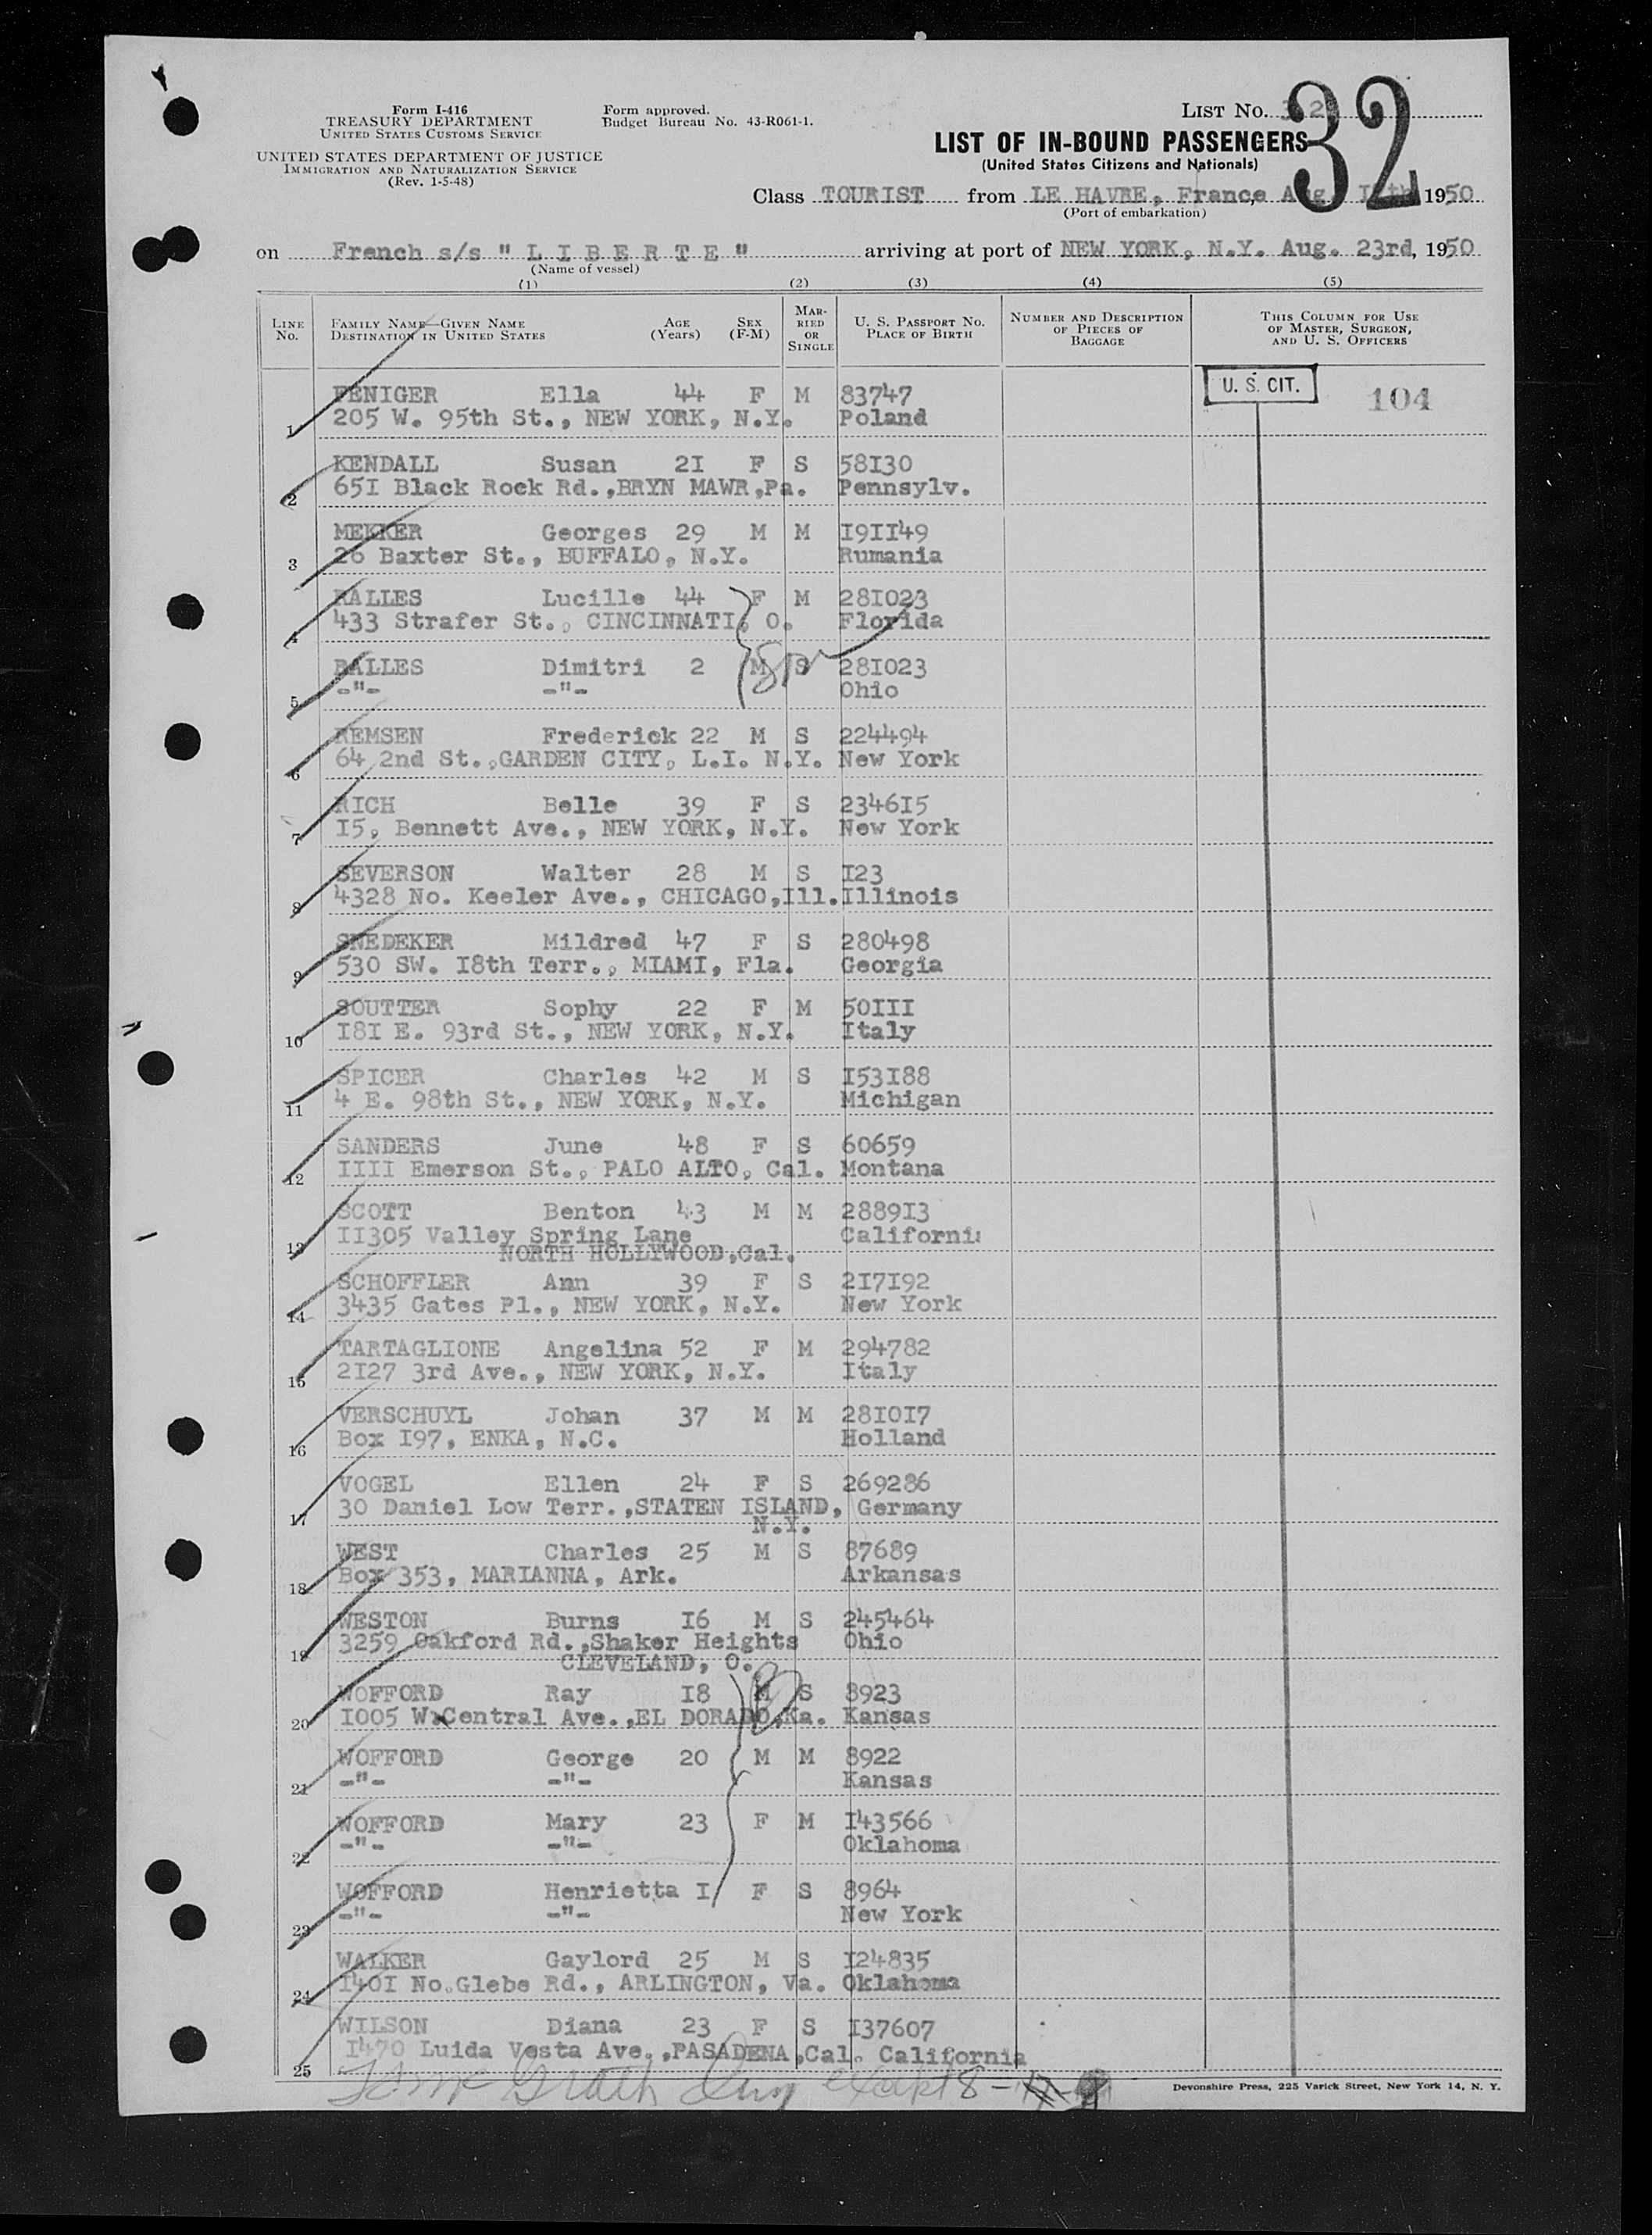 Form I-416
TREASURY DEPARTMENT
UNITED STATES CUSTOMS SERVICE
UNITED STATES DEPARTMENT OF JUSTICE
IMMIGRATION AND NATURALIZATION SERVICE
(Rev. 1-5-48)
Form approved.
Budget Bureau No. 43-R061-1.
LIST NO. 32
32
LIST OF IN-BOUND PASSENGERS
(United States Citizens and Nationals)
Class TOURIST from LE HAVRE, France, Aug 1950
(Port of embarkation)
on French s/s " L I B E R T E " arriving at port of NEW YORK, N.Y. Aug. 23rd, 1950
(Name of vessel)
(1) (2) (3) (4) (5)
LINE NO. FAMILY NAME—GIVEN NAME DESTINATION IN UNITED STATES AGE (Years) SEX (F-M) MARRIED OR SINGLE U. S. PASSPORT NO. PLACE OF BIRTH NUMBER AND DESCRIPTION OF PIECES OF BAGGAGE THIS COLUMN FOR USE OF MASTER, SURGEON, AND U. S. OFFICERS
U. S. CIT. 104
FENIGER Ella 44 F M 83747
1 205 W. 95th St., NEW YORK, N.Y. Poland
KENDALL Susan 2I F S 58I30
2 65I Black Rock Rd.,BRYN MAWR,Pa. Pennsylv.
MEKKER Georges 29 M M I9II49
3 26 Baxter St., BUFFALO, N.Y. Rumania
RALLES Lucille 44 F M 28I023
4 433 Strafer St., CINCINNATI, O. Florida
RALLES Dimitri 2 M S 28I023
5 -"- -"- Ohio
REMSEN Frederick 22 M S 224494
6 64 2nd St.,GARDEN CITY, L.I. N.Y. New York
RICH Belle 39 F S 2346I5
7 I5, Bennett Ave., NEW YORK, N.Y. New York
SEVERSON Walter 28 M S I23
8 4328 No. Keeler Ave., CHICAGO,Ill. Illinois
SNEDEKER Mildred 47 F S 280498
9 530 SW. I8th Terr., MIAMI, Fla. Georgia
SOUTTER Sophy 22 F M 50III
10 I8I E. 93rd St., NEW YORK, N.Y. Italy
SPICER Charles 42 M S I53I88
11 4 E. 98th St., NEW YORK, N.Y. Michigan
SANDERS June 48 F S 60659
12 IIII Emerson St., PALO ALTO, Cal. Montana
SCOTT Benton 43 M M 2889I3
II305 Valley Spring Lane California
13 NORTH HOLLYWOOD,Cal.
SCHOFFLER Ann 39 F S 2I7I92
14 3435 Gates Pl., NEW YORK, N.Y. New York
TARTAGLIONE Angelina 52 F M 294782
15 2I27 3rd Ave., NEW YORK, N.Y. Italy
VERSCHUYL Johan 37 M M 28I0I7
16 Box I97, ENKA, N.C. Holland
VOGEL Ellen 24 F S 269286
30 Daniel Low Terr.,STATEN ISLAND, Germany
17 N.Y.
WEST Charles 25 M S 87689
18 Box 353, MARIANNA, Ark. Arkansas
WESTON Burns I6 M S 245464
3259 Oakford Rd.,Shaker Heights Ohio
19 CLEVELAND, O.
WOFFORD Ray I8 M S 8923
20 I005 W.Central Ave.,EL DORADO,Ka. Kansas
WOFFORD George 20 M M 8922
21 -"- -"- Kansas
WOFFORD Mary 23 F M I43566
22 -"- -"- Oklahoma
WOFFORD Henrietta I F S 8964
23 -"- -"- New York
WALKER Gaylord 25 M S I24835
24 I40I No.Glebe Rd., ARLINGTON, Va. Oklahoma
WILSON Diana 23 F S I37607
25 I470 Luida Vesta Ave.,PASADENA,Cal. California
Devonshire Press, 225 Varick Street, New York 14, N. Y.